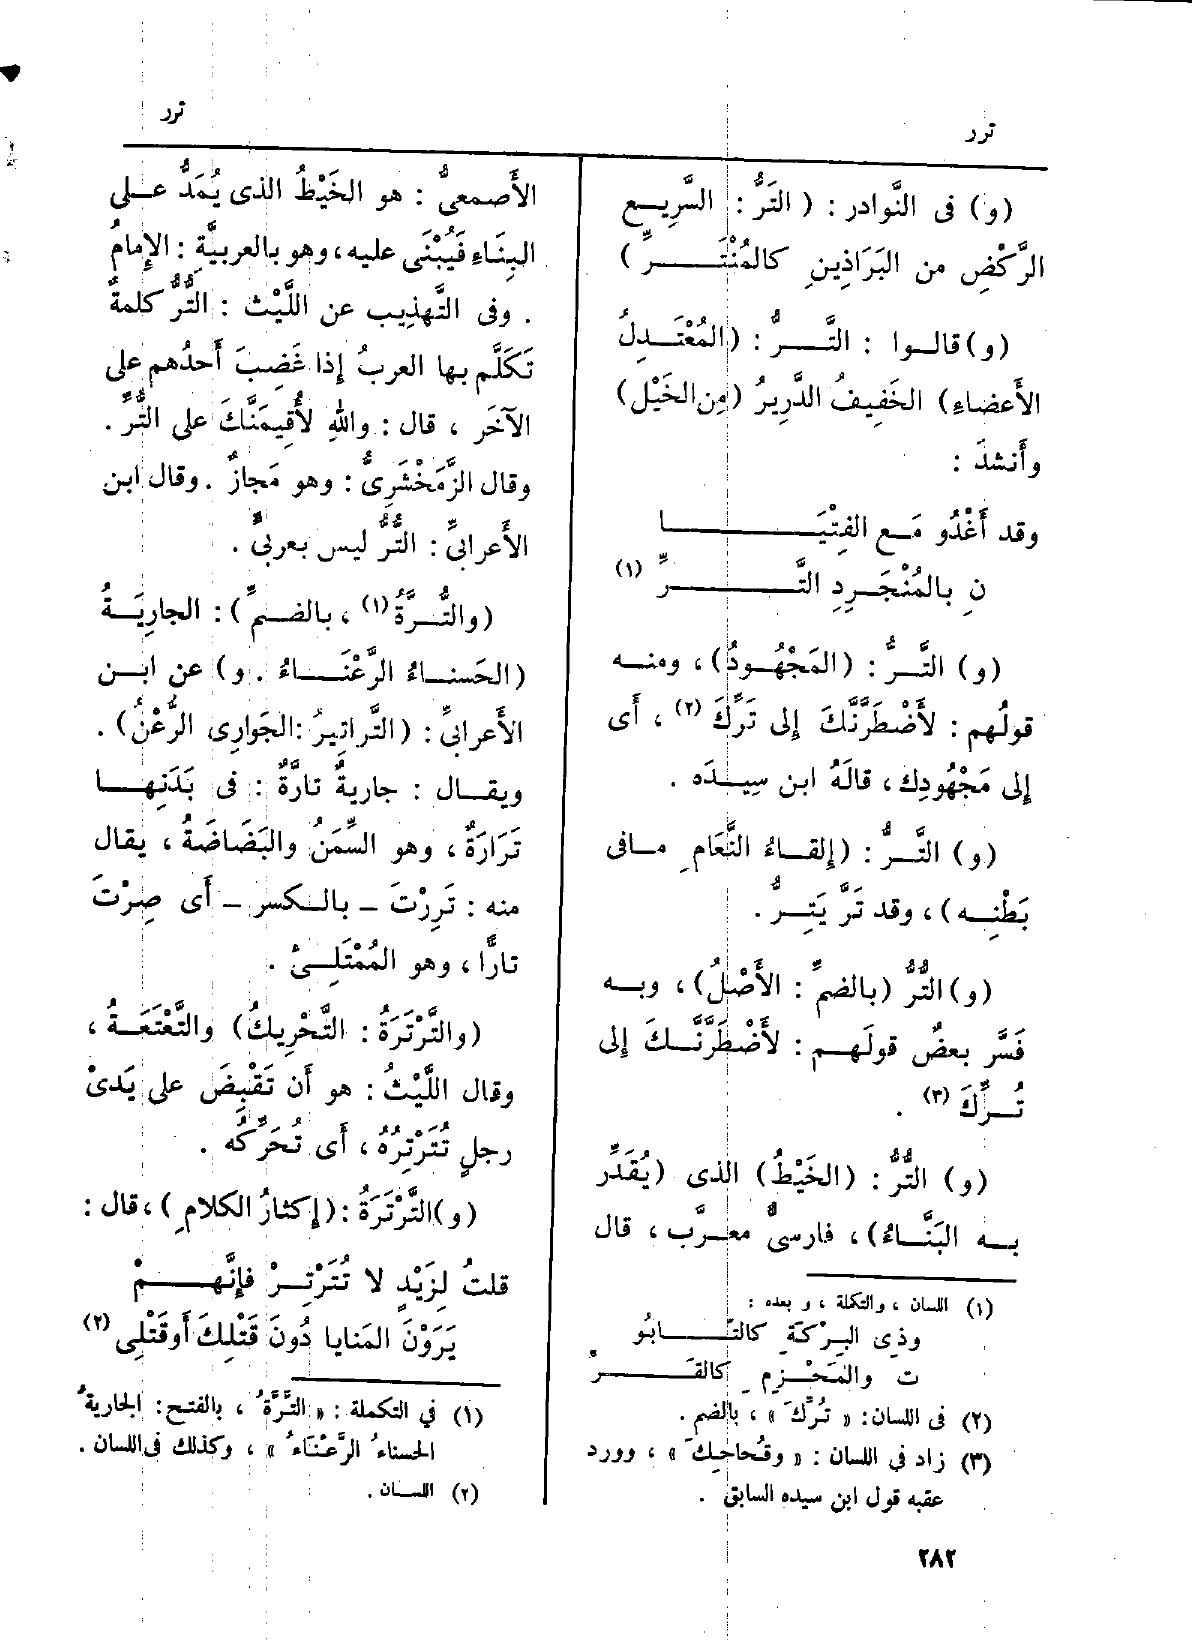 ترر
ترر
(و) فى النَّوادر : (التَرُّ : السَّرِيع
الرَّكْضِ من البَرَاذِينِ كالمُنْتَرِّ)
(و) قالوا : التَّرُّ : (المُعْتَدِلُ
الأَعضاءِ) الخَفِيفُ الدَّرِيرُ (مِن الخَيْل)
وأَنشدَ :
وقد أَغْدُو مَع الفِتْيَا
نِ بالمُنْجَرِدِ التَّرِّ (١)
(و) التَّرُّ : (المَجْهُودُ) ، ومنه
قولُهم : لأَضْطَرَّنَّكَ إِلى تَرِّكَ (٢) ، أَى
إِلى مَجْهُودِك ، قالَهُ ابن سِيدَه .
(و) التَّرُّ : (إِلقاءُ النَّعَامِ مافى
بَطْنِه) ، وقد تَرَّ يَتِرُّ .
(و) التُّرُّ (بالضمِّ : الأَصْلُ) ، وبه
فَسَّر بعضٌ قولَهم : لأَضْطَرَّنَّكَ إِلى
تُرِّكَ (٣) .
(و) التُّرُّ : (الخَيْطُ) الذى (يُقَدِّر
به البَنَّاءُ) ، فارسىٌّ معرَّب ، قال
(١) اللسان ، والتكملة ، و بعده :
وذِى البِرْكَةِ كالتَّابُو
ت والمَحْزِمِ كالقَرِّ
(٢) فى اللسان : « تُرِّكَ » ، بالضم .
(٣) زاد في اللسان : « وقُحاحِكَ » ، وورد
عقبه قول ابن سيده السابق .
الأَصمعىُّ : هو الخَيْطُ الذى يُمَدُّ على
البِنَاءِ فَيُبْنَى عليه ، وهو بالعربيَّةِ : الإِمامُ
. وفى التَّهذِيب عن اللَّيْث : التُّرُّ كلمةٌ
تَكَلَّم بها العربُ إِذا غَضِبَ أَحدُهم على
الآخَر ، قال : واللهِ لأُقِيمَنَّكَ على التُّرِّ .
وقال الزَّمَخْشَرِىُّ : وهو مَجازٌ . وقال ابن
الأَعرابىِّ : التُّرُّ ليس بعربىٍّ .
(والتُّرَّةُ (١) ، بالضمِّ) : الجارِيَةُ
(الحَسناءُ الرَّعْنَاءُ . و) عن ابن
الأَعرابىِّ : (التَّراتِيرُ : الجَوارِى الرُّعْنُ) .
ويقال : جاريةٌ تارَّةٌ : فى بَدَنِها
تَرَارَةٌ ، وهو السِّمَنُ والبَضَاضَةُ ، يقال
منه : تَرِرْتَ _ بالكسر _ أَى صِرْتَ
تارًّا ، وهو المُمْتَلِئُ .
(والتَّرْتَرَةُ : التَّحْرِيكُ) والتَّعْتَعَةُ ،
وقال اللَّيْثُ : هو أَن تَقْبِضَ على يَدَىْ
رجلٍ تُتَرْتِرُهُ ، أَى تُحَرِّكُه .
(و) التَّرْتَرَةُ : (إِكثارُ الكلامِ ) ، قال :
قلتُ لِزَيْدٍ لا تُتَرْتِرْ فإِنَّهمْ
يَرَوْنَ المَنايا دُونَ قَتْلِكَ أَوقَتْلِى (٢)
(١) في التكملة : « التَّرَّةُ ، بالفتح : الجاريةُ
الحسناءُ الرَّعْنَاءُ » ، وكذلك فى اللسان .
(٢) اللسان .
٢٨٢